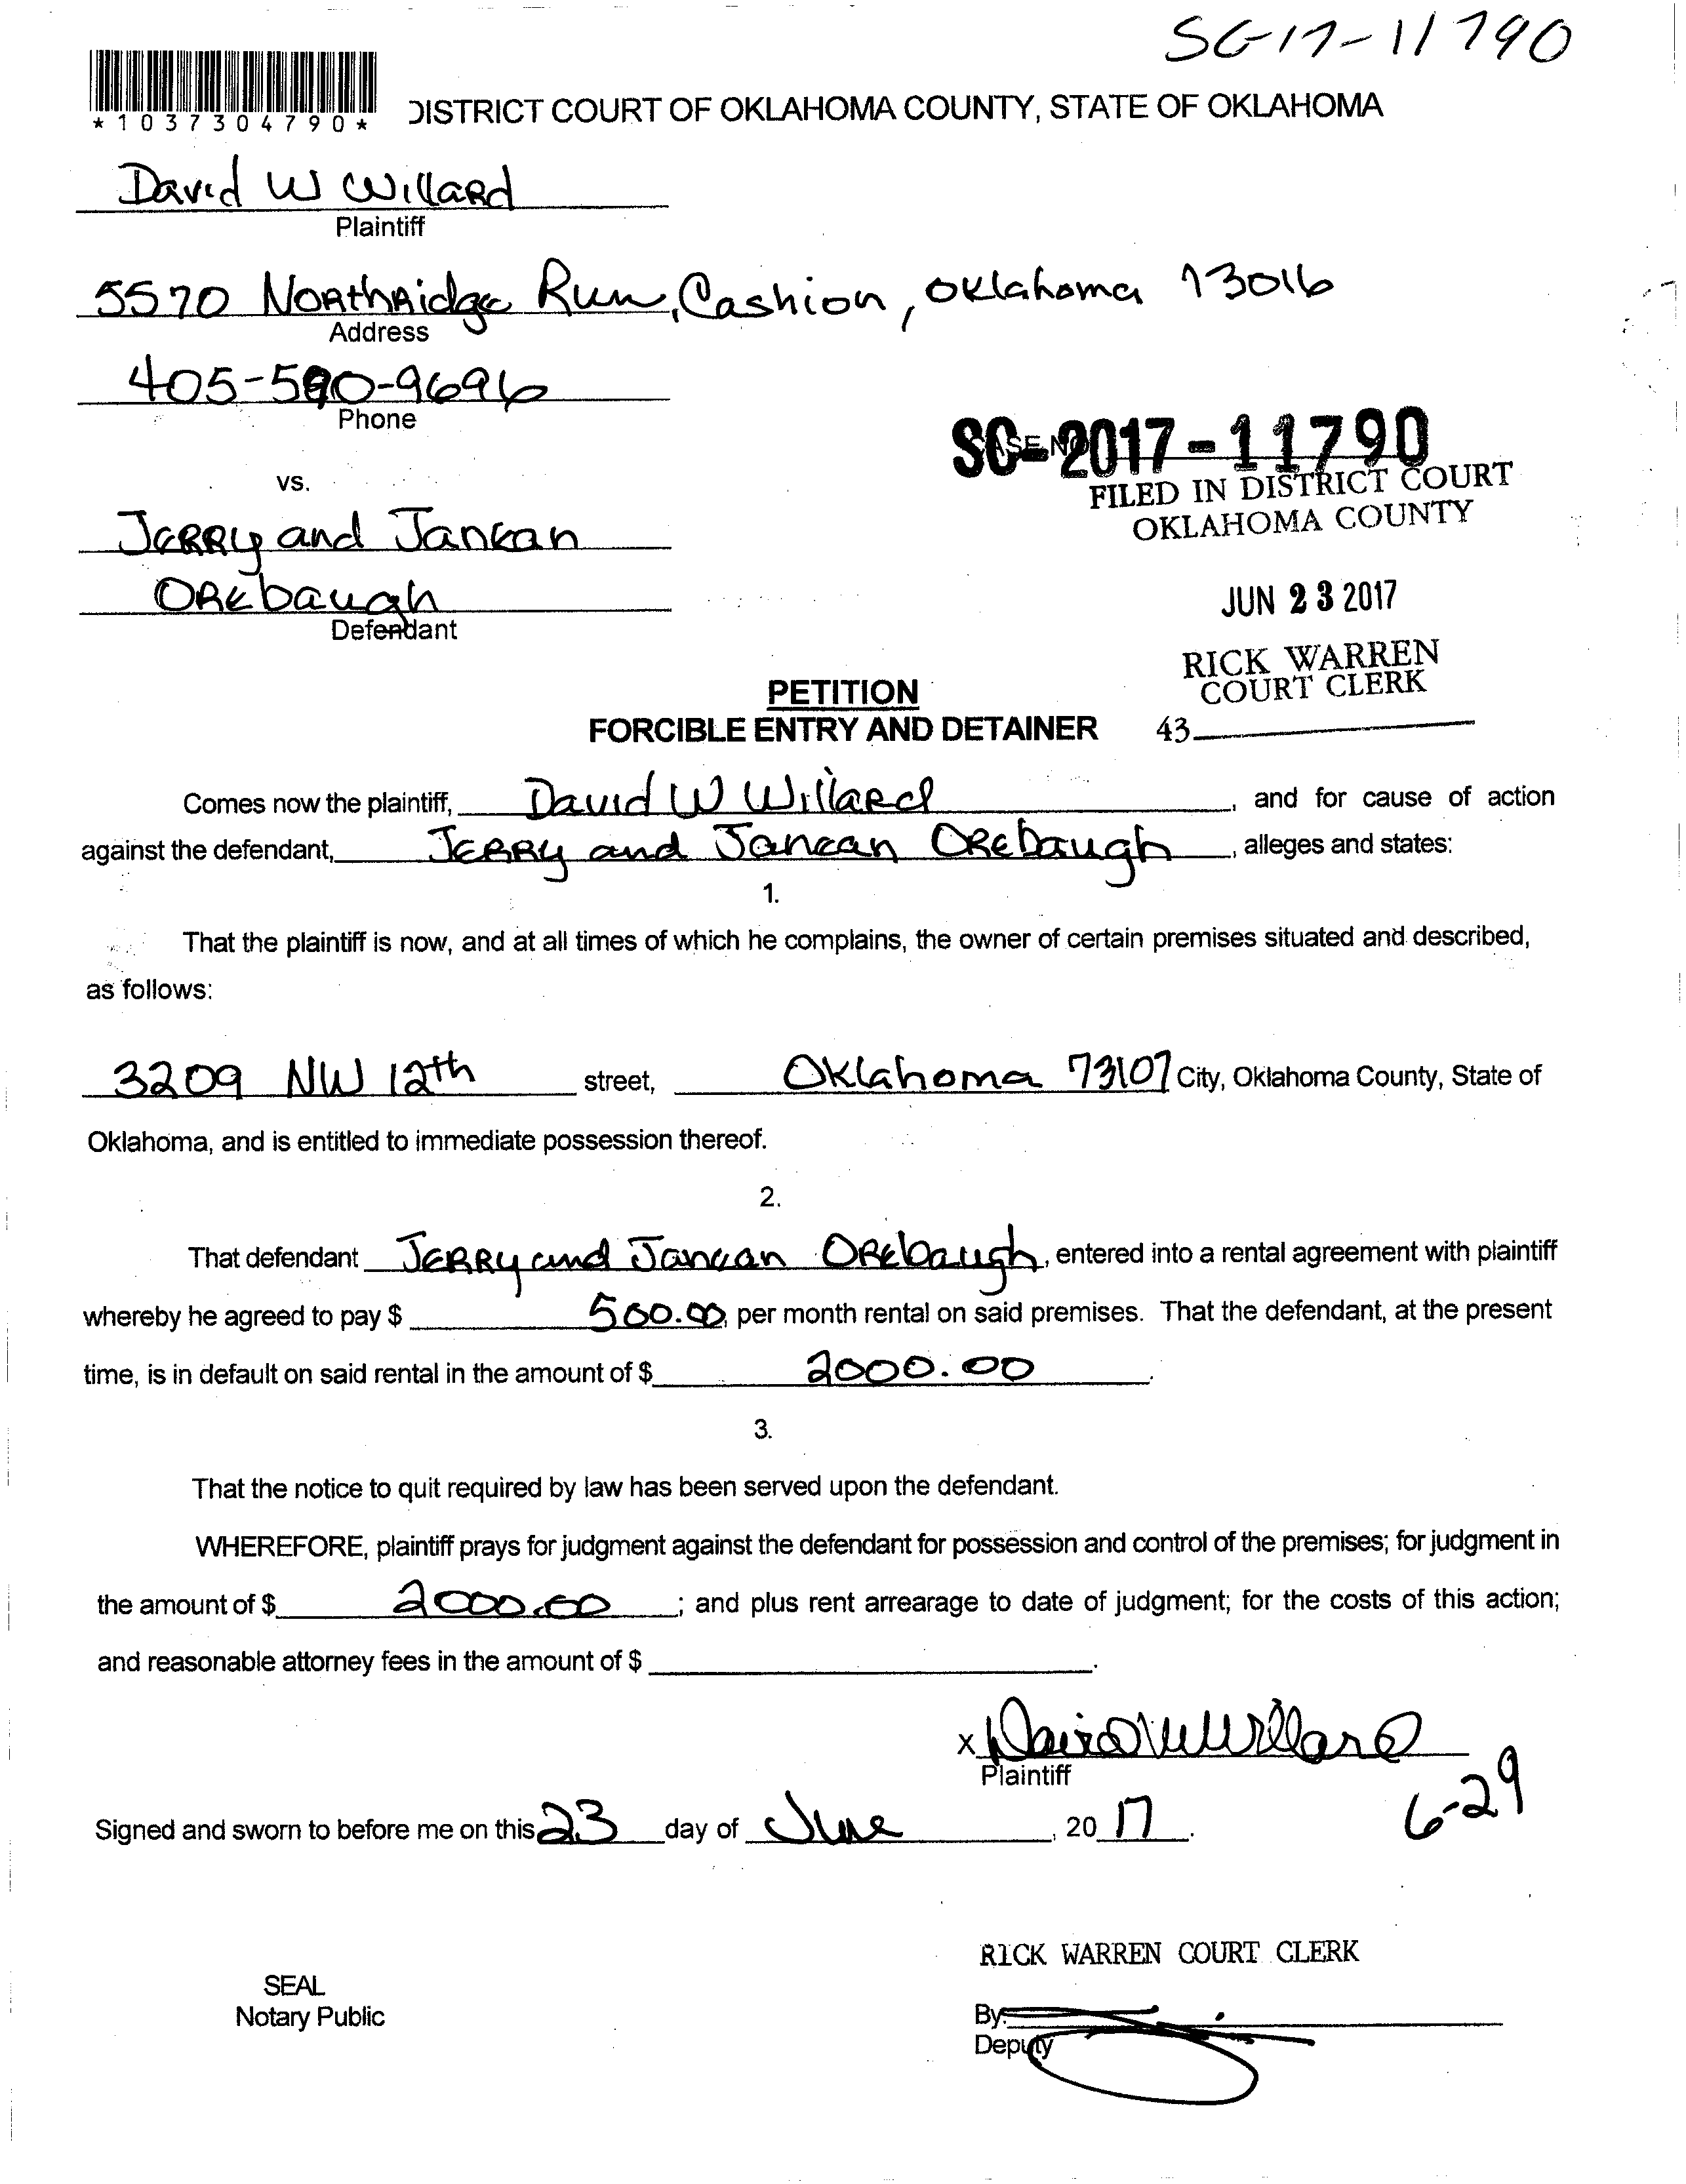 SC-17-11790
*1037304790*
DISTRICT COURT OF OKLAHOMA COUNTY, STATE OF OKLAHOMA
David W Willard
Plaintiff
5570 Northridge Run, Cashion, Oklahoma 73016
Address
405-590-9696
Phone
CASE NO.
SC-2017-11790
vs.
FILED IN DISTRICT COURT
OKLAHOMA COUNTY
Jerry and Janean
Orebaugh
Defendant
JUN 23 2017
RICK WARREN
COURT CLERK
43
PETITION
FORCIBLE ENTRY AND DETAINER
Comes now the plaintiff, David W Willard, and for cause of action
against the defendant, Jerry and Janean Orebaugh, alleges and states:
1.
That the plaintiff is now, and at all times of which he complains, the owner of certain premises situated and described,
as follows:
3209 NW 12th street, Oklahoma 73107 City, Oklahoma County, State of
Oklahoma, and is entitled to immediate possession thereof.
2.
That defendant Jerry and Janean Orebaugh, entered into a rental agreement with plaintiff
whereby he agreed to pay $ 500.00, per month rental on said premises. That the defendant, at the present
time, is in default on said rental in the amount of $ 2000.00.
3.
That the notice to quit required by law has been served upon the defendant.
WHEREFORE, plaintiff prays for judgment against the defendant for possession and control of the premises; for judgment in
the amount of $ 2000.00; and plus rent arrearage to date of judgment; for the costs of this action;
and reasonable attorney fees in the amount of $ .
x David W Willard
Plaintiff
6-29
Signed and sworn to before me on this 23 day of June, 2017.
RICK WARREN COURT CLERK
SEAL
Notary Public
By:
Deputy